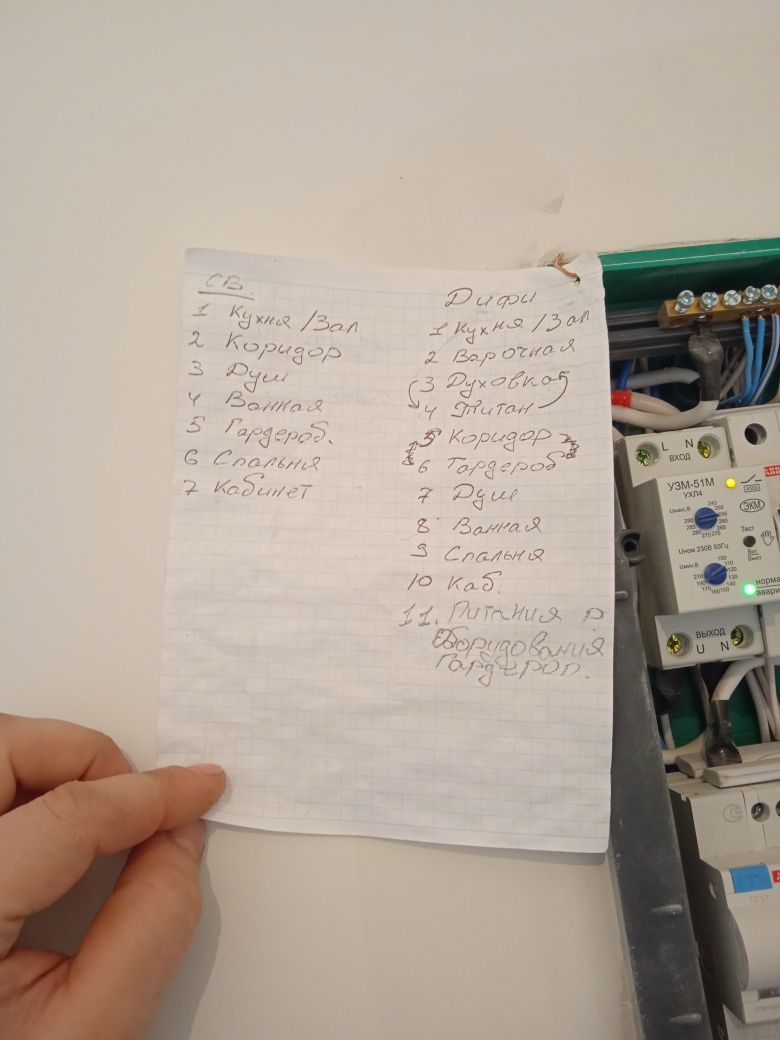 СВ.
1 Кухня/Зал
2 Коридор
3 Душ
4 Ванная
5 Гардероб.
6 Спальня
7 Кабинет
Дифи
1 Кухня/Зал
2 Варочная
3 Духовка
4 Титан
5 Коридор
6 Гардероб
7 Душ
8 Ванная
9 Спальня
10 Каб.
11. Питания р
оборудования
Гардероп.
L N
ВХОД
УЗМ-51М
УХЛ4
ЭКМ
Uмакс,В
Тест
Вкл
Выкл
Uном 230В 50Гц
Uмин,В
норма
авари
ВЫХОД
U N
TEST